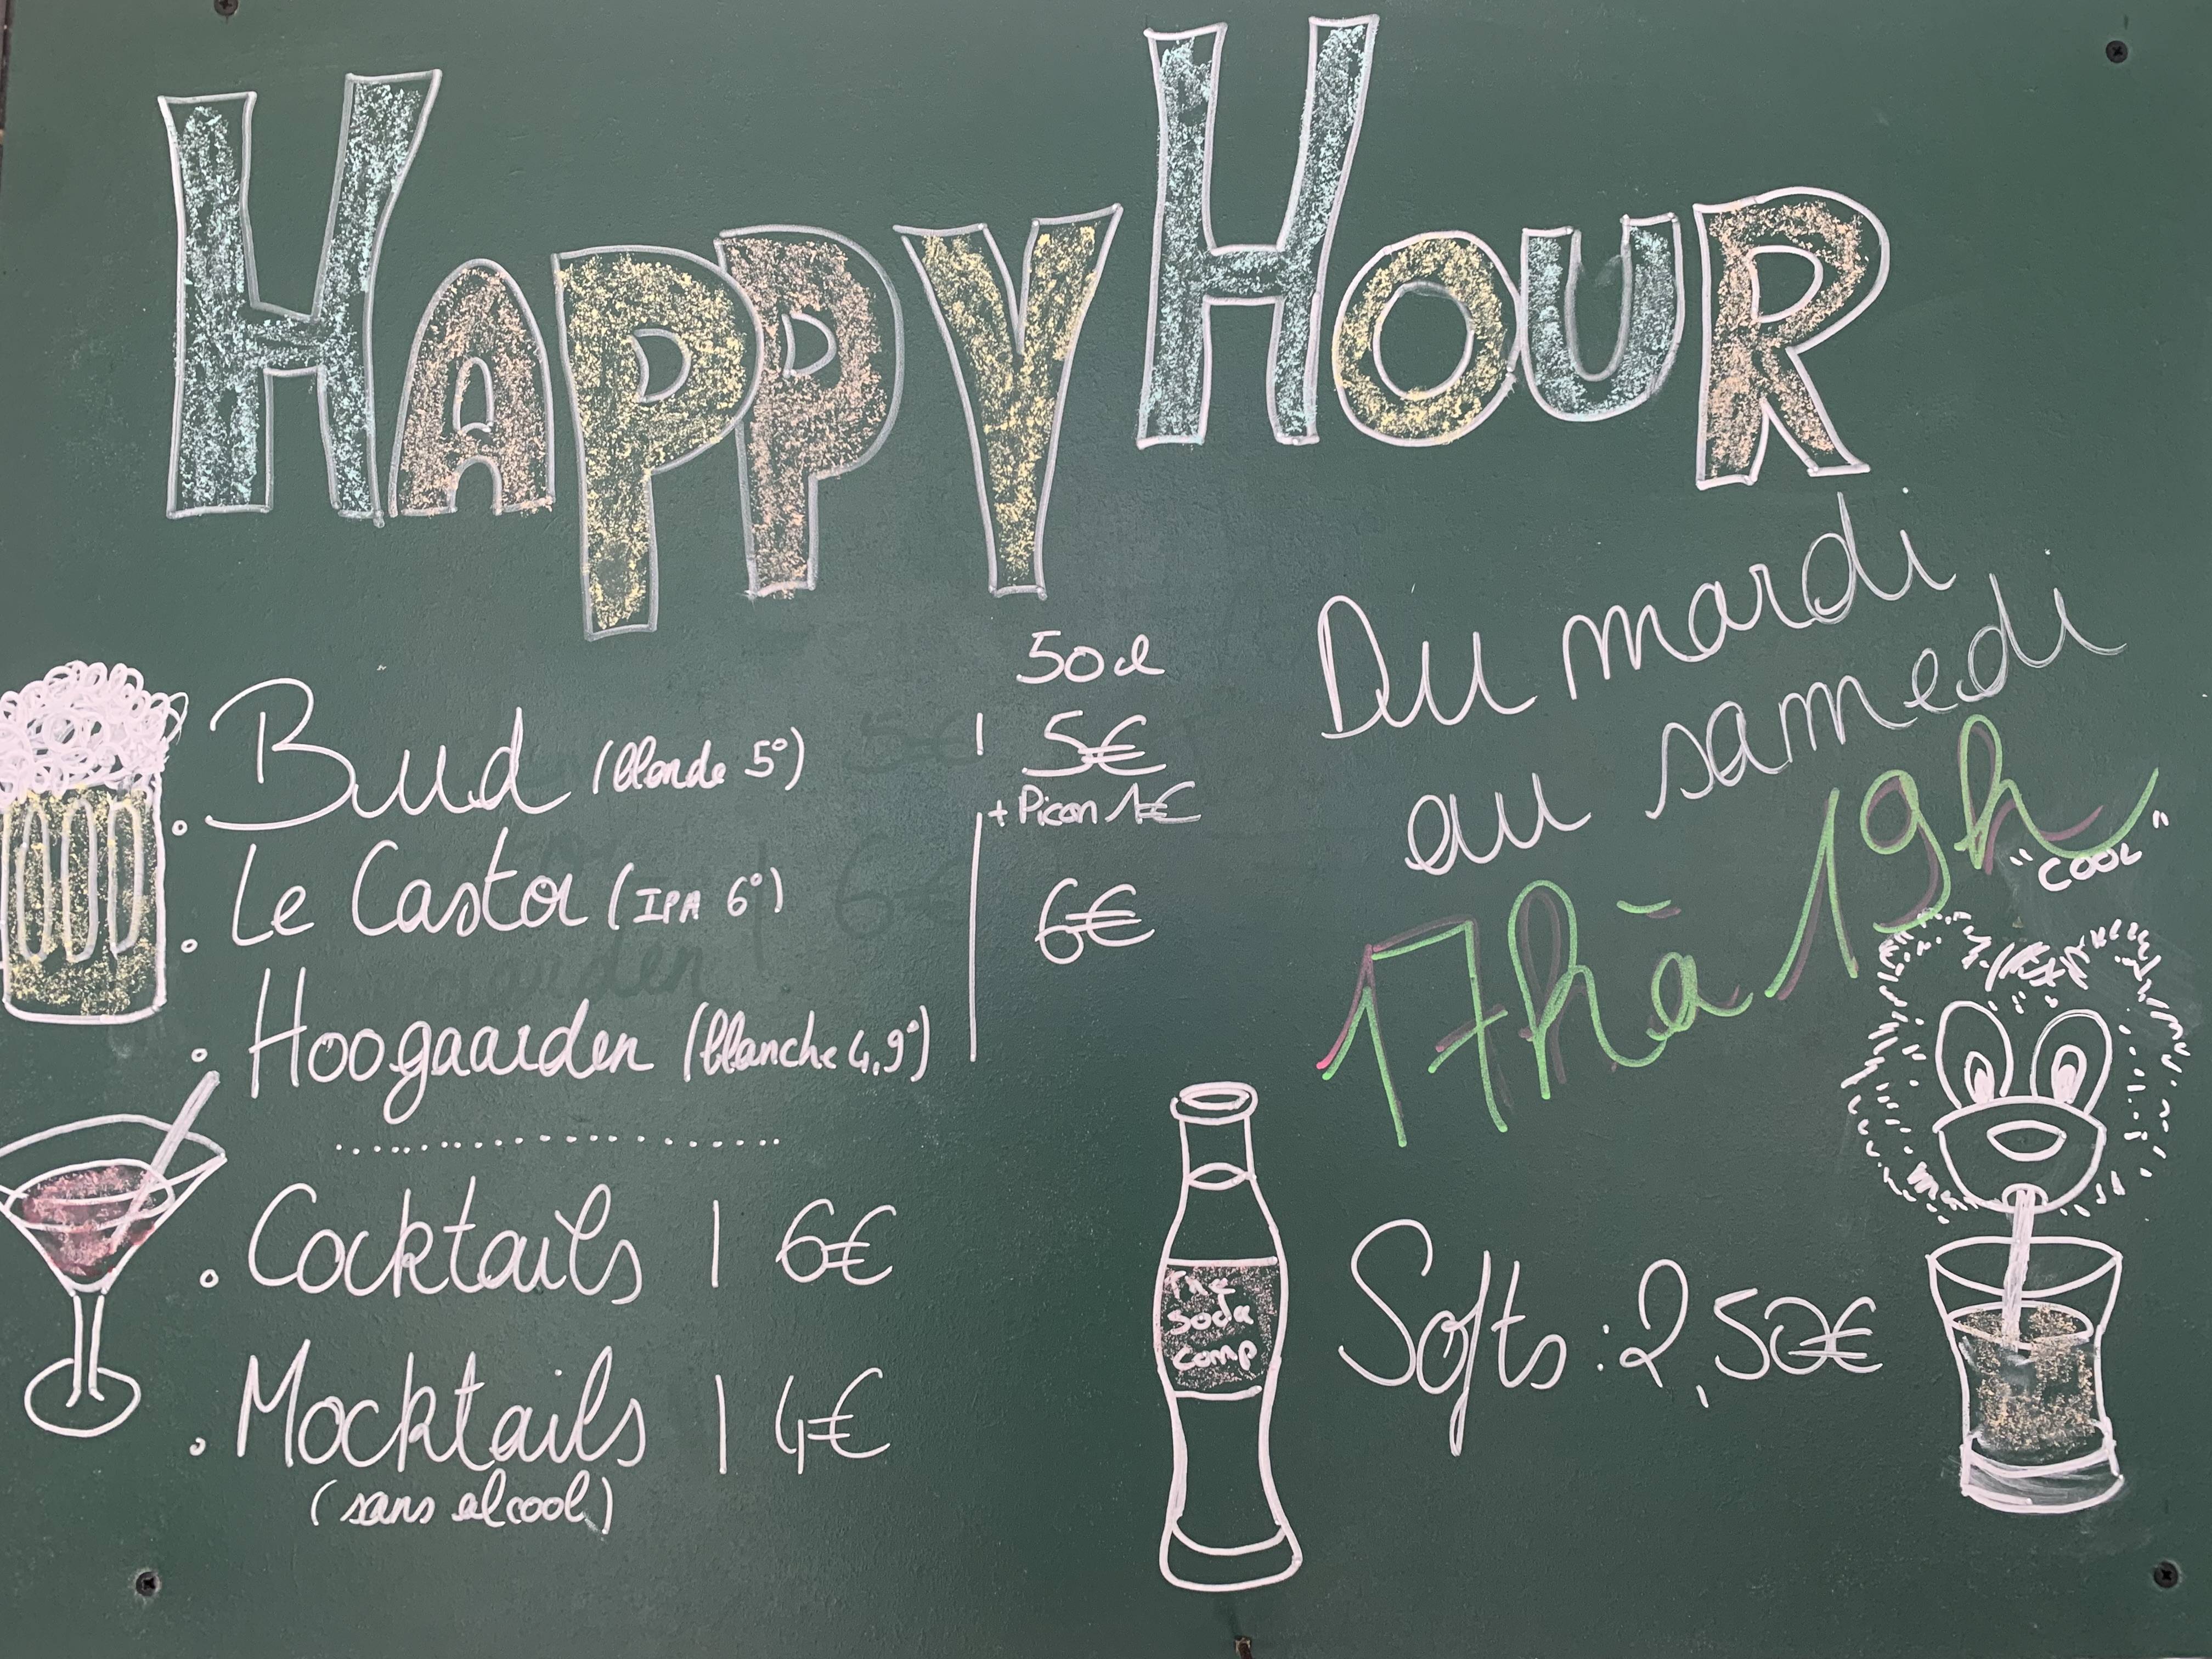 HAPPY HOUR
Du mardi
au samedi
17h à 19h
50cl
. Bud (blonde 5°) | 5€
+ Picon 1€
. Le Castor (IPA 6°) | 6€
. Hoogaarden (blanche 4,9°)
. Cocktails | 6€
. Mocktails | 4€
(sans alcool)
The
soda
comp
Softs : 2,50€
"COOL"